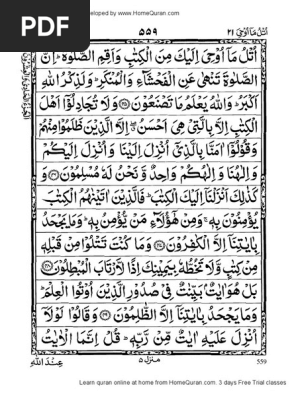 PDF
developed by www.HomeQuran.com
اتل ما اوحی ۲۱
۵۵۹
اُتْلُ مَاۤ اُوْحِیَ اِلَیْكَ مِنَ الْكِتٰبِ وَاَقِمِ الصَّلٰوةَ ؕ اِنَّ
الصَّلٰوةَ تَنْهٰی عَنِ الْفَحْشَآءِ وَالْمُنْكَرِ ؕ وَلَذِكْرُ اللّٰهِ
اَكْبَرُ ؕ وَاللّٰهُ یَعْلَمُ مَا تَصْنَعُوْنَ ﴿۴۵﴾ وَلَا تُجَادِلُوْۤا اَهْلَ
الْكِتٰبِ اِلَّا بِالَّتِیْ هِیَ اَحْسَنُ ۖ اِلَّا الَّذِیْنَ ظَلَمُوْا مِنْهُمْ
وَقُوْلُوْۤا اٰمَنَّا بِالَّذِیْۤ اُنْزِلَ اِلَیْنَا وَاُنْزِلَ اِلَیْكُمْ
وَاِلٰهُنَا وَاِلٰهُكُمْ وَاحِدٌ وَّنَحْنُ لَهٗ مُسْلِمُوْنَ ﴿۴۶﴾ وَ
كَذٰلِكَ اَنْزَلْنَاۤ اِلَیْكَ الْكِتٰبَ ؕ فَالَّذِیْنَ اٰتَیْنٰهُمُ الْكِتٰبَ
یُؤْمِنُوْنَ بِهٖ ۚ وَمِنْ هٰۤؤُلَآءِ مَنْ یُّؤْمِنُ بِهٖ ؕ وَمَا یَجْحَدُ
بِاٰیٰتِنَاۤ اِلَّا الْكٰفِرُوْنَ ﴿۴۷﴾ وَمَا كُنْتَ تَتْلُوْا مِنْ قَبْلِهٖ
مِنْ كِتٰبٍ وَّلَا تَخُطُّهٗ بِیَمِیْنِكَ اِذًا لَّارْتَابَ الْمُبْطِلُوْنَ ﴿۴۸﴾
بَلْ هُوَ اٰیٰتٌۢ بَیِّنٰتٌ فِیْ صُدُوْرِ الَّذِیْنَ اُوْتُوا الْعِلْمَ ؕ
وَمَا یَجْحَدُ بِاٰیٰتِنَاۤ اِلَّا الظّٰلِمُوْنَ ﴿۴۹﴾ وَقَالُوْا لَوْلَاۤ
اُنْزِلَ عَلَیْهِ اٰیٰتٌ مِّنْ رَّبِّهٖ ؕ قُلْ اِنَّمَا الْاٰیٰتُ
عِنْدَ اللّٰهِ
منزل ۵
559
Learn quran online at home from HomeQuran.com. 3 days Free Trial classes